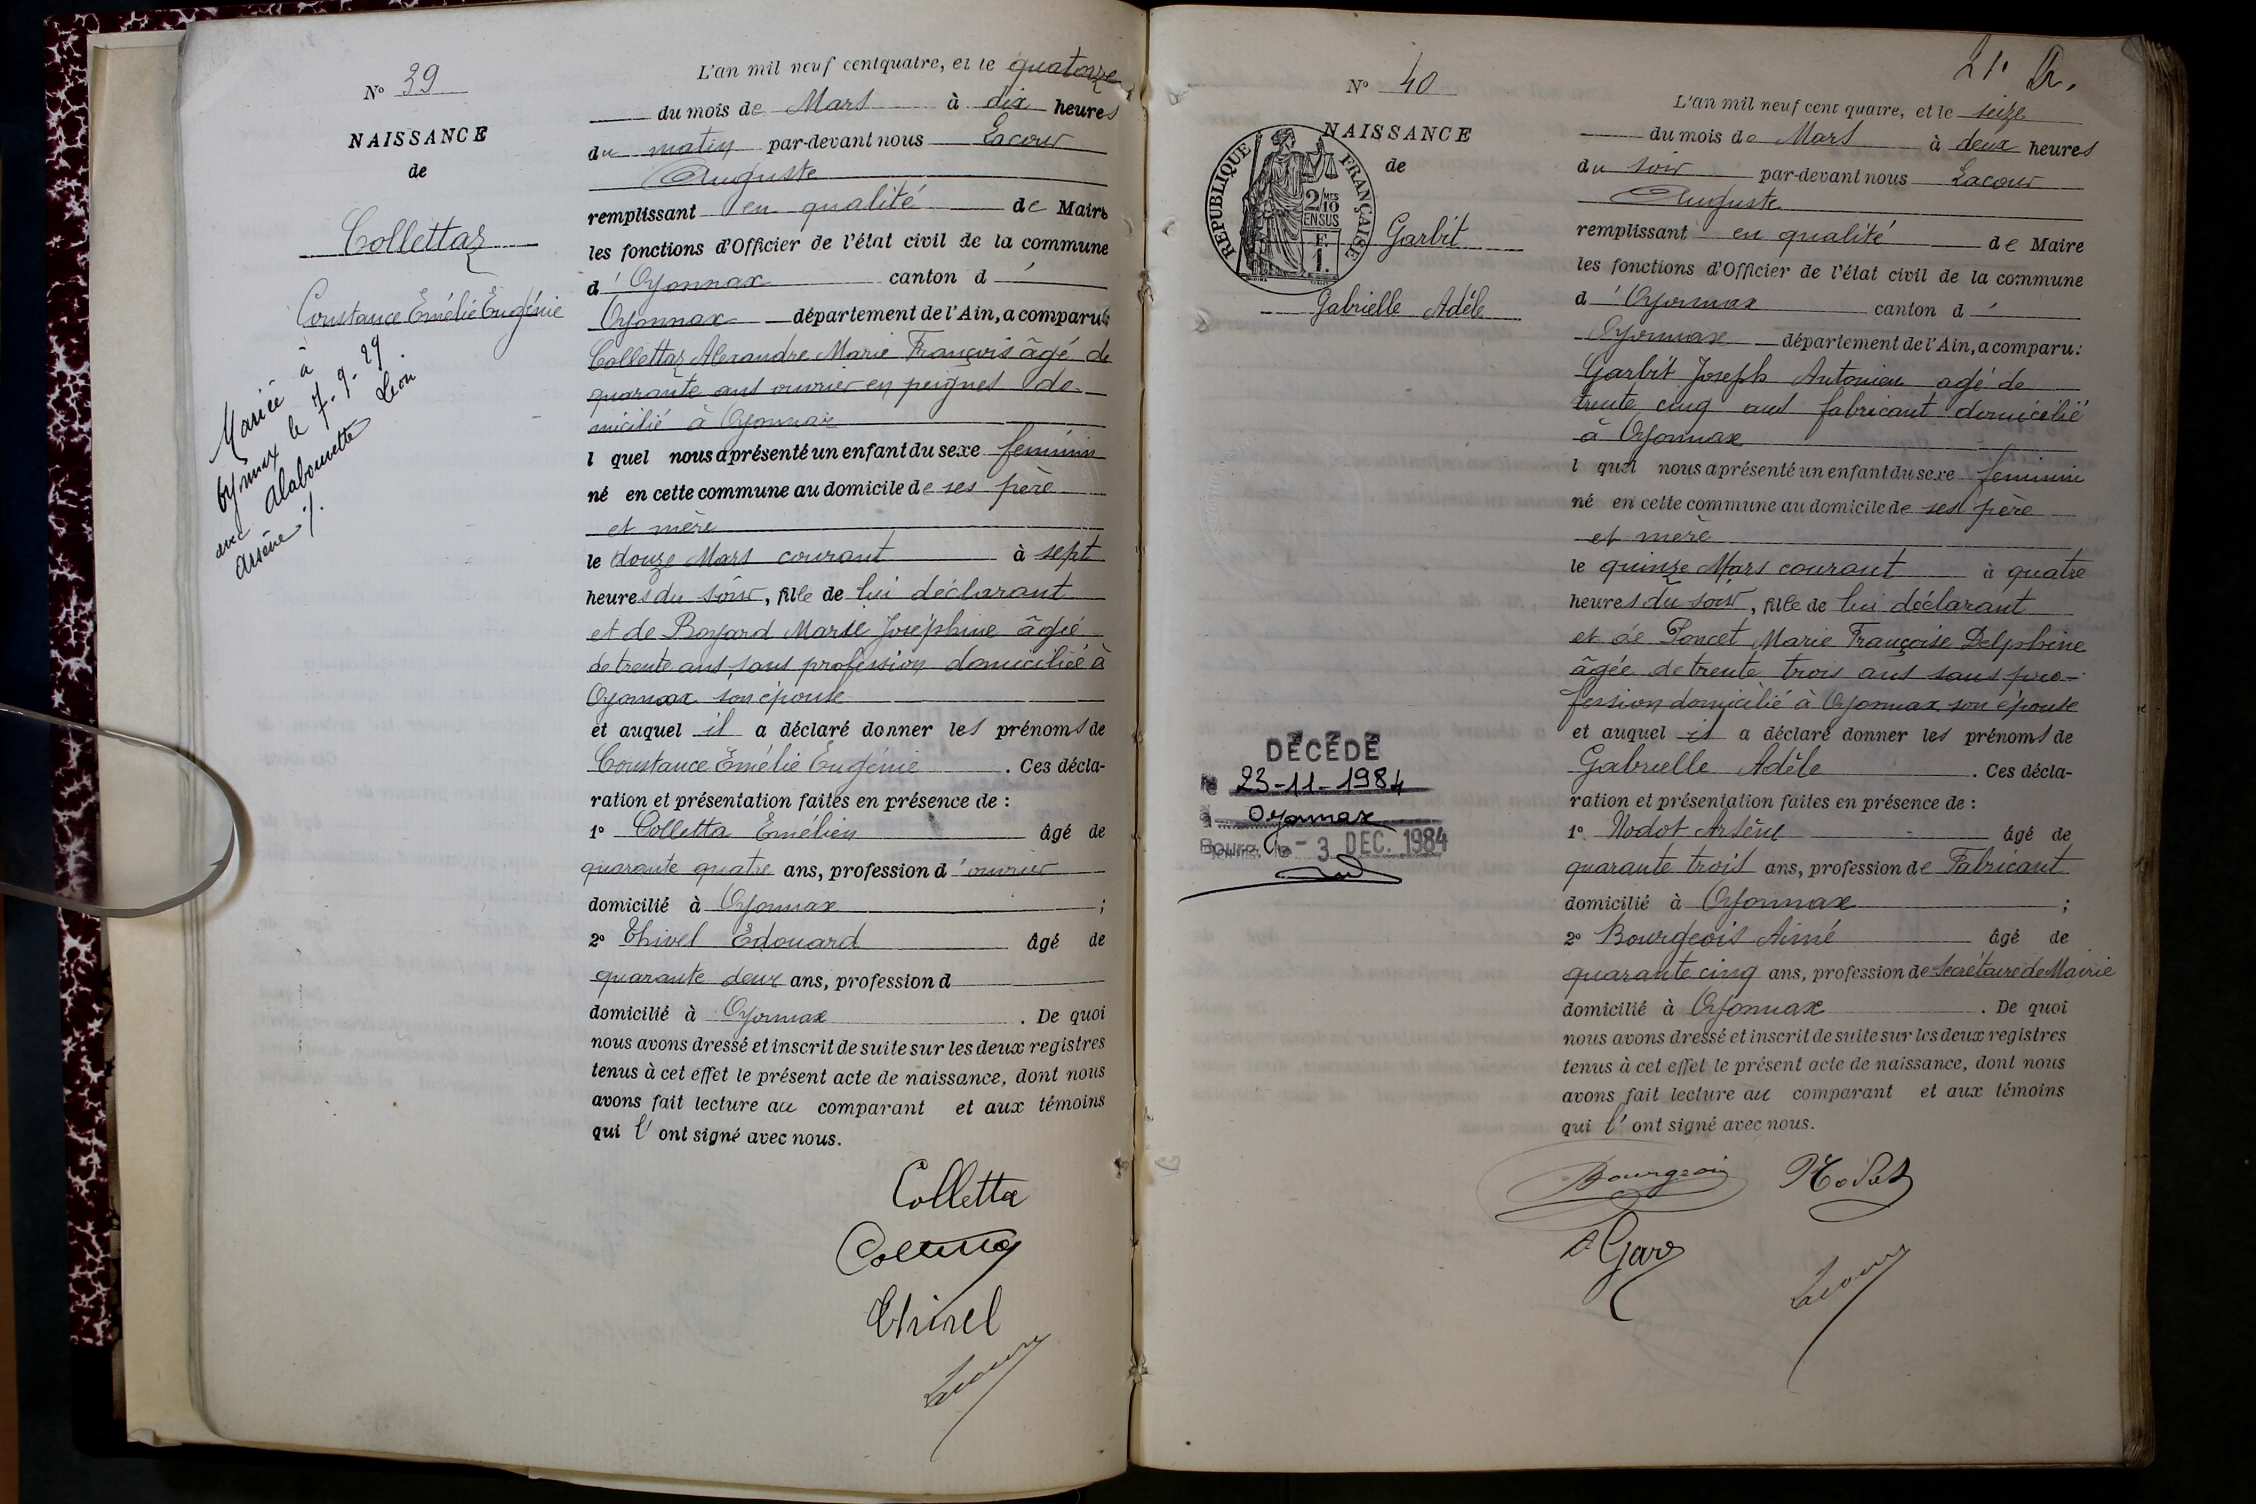 N° 39
NAISSANCE
de
Collettaz
Constance Emélie Eugénie
Mariée à
Oyonnax le 7-9-29
avec Alabourette Léon
Arsène /.
L'an mil neuf cent quatre, et le quatorze
du mois de Mars à dix heures
du matin par-devant nous Lacour
Auguste
remplissant en qualité de Maire
les fonctions d'Officier de l'état civil de la commune
d'Oyonnax canton d'
Oyonnax département de l'Ain, a comparu:
Collettaz Alexandre Marie François âgé de
quarante ans ouvrier en peignes do-
micilié à Oyonnax
l quel nous a présenté un enfant du sexe feminin
né en cette commune au domicile de ses père
et mère
le douze Mars courant à sept
heures du soir, fille de lui déclarant
et de Boyard Marie Joséphine âgée
de trente ans, sans profession domiciliée à
Oyonnax son épouse
et auquel il a déclaré donner les prénoms de
Constance Emélie Eugénie. Ces décla-
ration et présentation faites en présence de :
1° Colletta Emélien âgé de
quarante quatre ans, profession d'ouvrier
domicilié à Oyonnax ;
2° Thivel Edouard âgé de
quarante deux ans, profession d
domicilié à Oyonnax. De quoi
nous avons dressé et inscrit de suite sur les deux registres
tenus à cet effet le présent acte de naissance, dont nous
avons fait lecture au comparant et aux témoins
qui l'ont signé avec nous.
Colletta
Collettaz
Thivel
Lacour
21.
N° 40
NAISSANCE
de
RÉPUBLIQUE FRANÇAISE
2/10 MES
EN SUS
F.
1.
Garbit
Gabrielle Adèle
DÉCÉDÉ
le 23-11-1984
à Oyonnax
Bourg, le - 3 DEC. 1984
L'an mil neuf cent quatre, et le seize
du mois de Mars à deux heures
du soir par-devant nous Lacour
Auguste
remplissant en qualité de Maire
les fonctions d'Officier de l'état civil de la commune
d'Oyonnax canton d'
Oyonnax département de l'Ain, a comparu:
Garbit Joseph Antonien agé de
trente cinq ans fabricant domicilié
à Oyonnax
l quel nous a présenté un enfant du sexe feminin
né en cette commune au domicile de ses père
et mère
le quinze Mars courant à quatre
heures du soir, fille de lui déclarant
et de Poncet Marie Françoise Delphine
âgée de trente trois ans sans pro-
fession domicilié à Oyonnax son épouse
et auquel il a déclaré donner les prénoms de
Gabrielle Adèle. Ces décla-
ration et présentation faites en présence de :
1° Nodot Arsène âgé de
quarante trois ans, profession de Fabricant
domicilié à Oyonnax ;
2° Bourgeois Aimé âgé de
quarante cinq ans, profession de Secrétaire de Mairie
domicilié à Oyonnax. De quoi
nous avons dressé et inscrit de suite sur les deux registres
tenus à cet effet le présent acte de naissance, dont nous
avons fait lecture au comparant et aux témoins
qui l'ont signé avec nous.
Bourgeois Nodot
Lacour